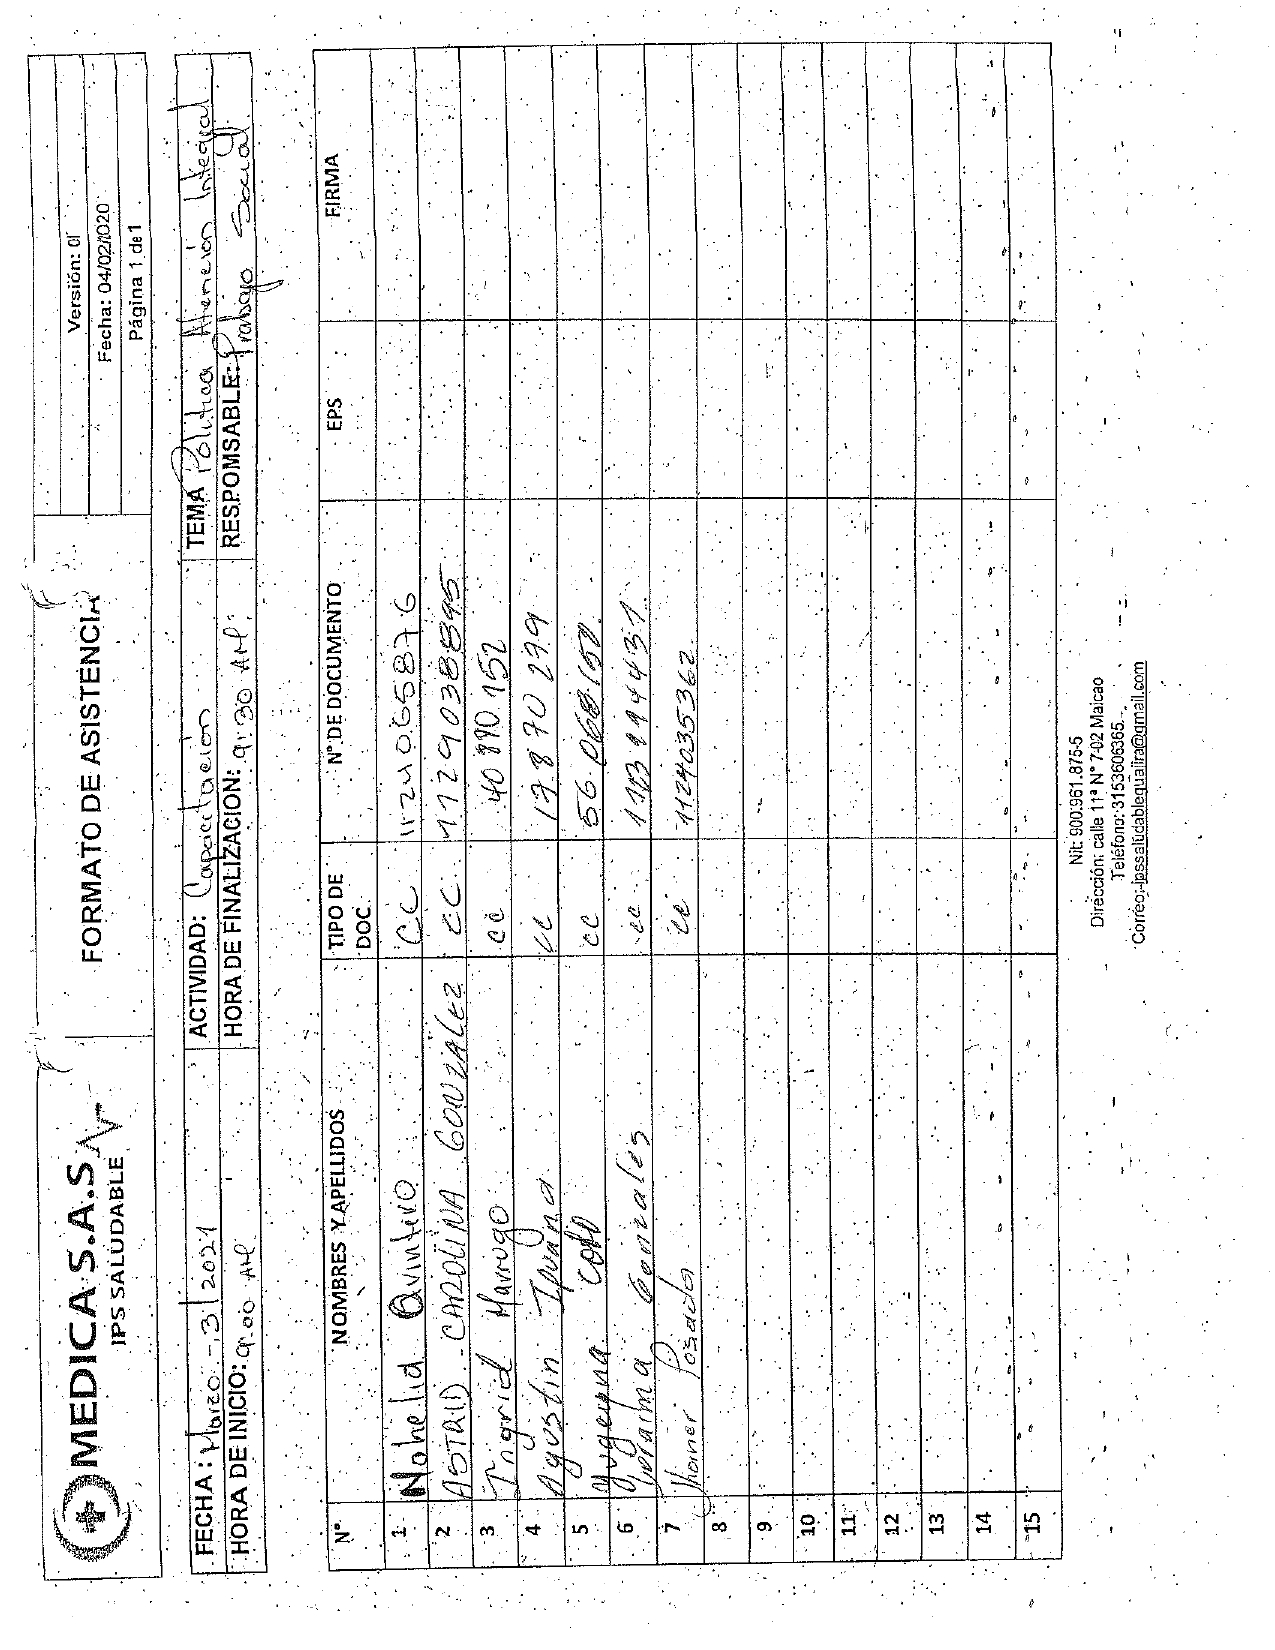 MEDICA S.A.S
IPS SALUDABLE
FORMATO DE ASISTENCIA
Versión: 01
Fecha: 04/02/2020
Página 1 de 1
FECHA: Marzo - 3/2021 ACTIVIDAD: Capacitacion TEMA Politica Atencion Integral
HORA DE INICIO: 9:00 AM HORA DE FINALIZACION: 9:30 AM. RESPOMSABLE: Trabajo Social
N° NOMBRES Y APELLIDOS TIPO DE DOC. N° DE DOCUMENTO EPS FIRMA
1 Nohelia Quintero CC 1124065876
2 ASTRID CAROLINA GONZALEZ CC 1129038895
3 Ingrid Marrugo cc
4 Agustin cc 17870279
5 cc
6 Gonzales cc
7 Jhoner Posada cc 1124035362
8
9
10
11
12
13
14
15
Nit: 900.961.875-5
Dirección: calle 11ª N° 7-02 Maicao
Teléfono: 3153606365
Correo: ipssaludableguajira@gmail.com